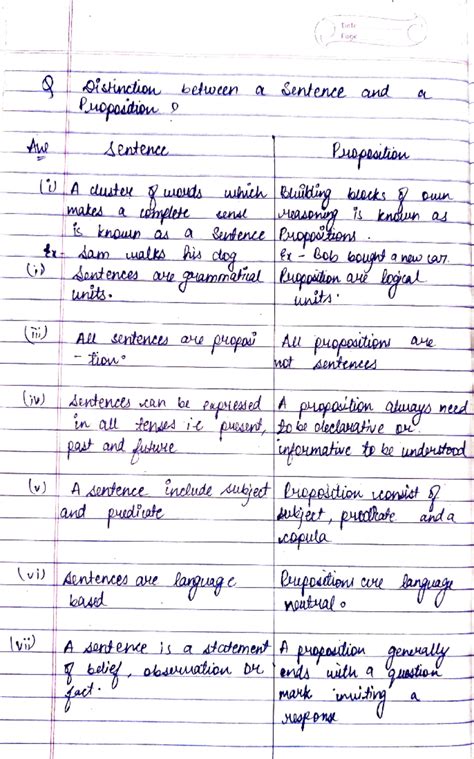 Date
Page
Q Distinction between a Sentence and a
Proposition ?
Ans Sentence Proposition
(i) A cluster of words which Building blocks of own
makes a complete sense reasoning is known as
is known as a Sentence Propositions.
Ex- Sam walks his dog Ex - Bob bought a new car.
(i) Sentences are grammatical Proposition are logical
units. units.
(iii) All sentences are proposi All propositions are
-tion. not sentences
(iv) Sentences can be expressed A proposition always need
in all tenses i.e present, to be declarative or
past and future informative to be understood
(v) A sentence include subject Proposition consist of
and predicate subject, predicate and a
copula
(vi) Sentences are language Propositions are language
based neutral.
(vii) A sentence is a statement A proposition generally
of belief, observation or ends with a question
fact. mark inviting a
response